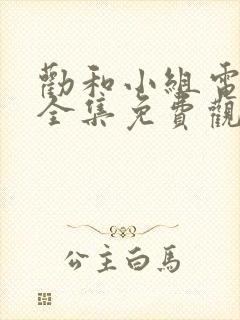 勸和小組電
全集免費觀
公主白馬